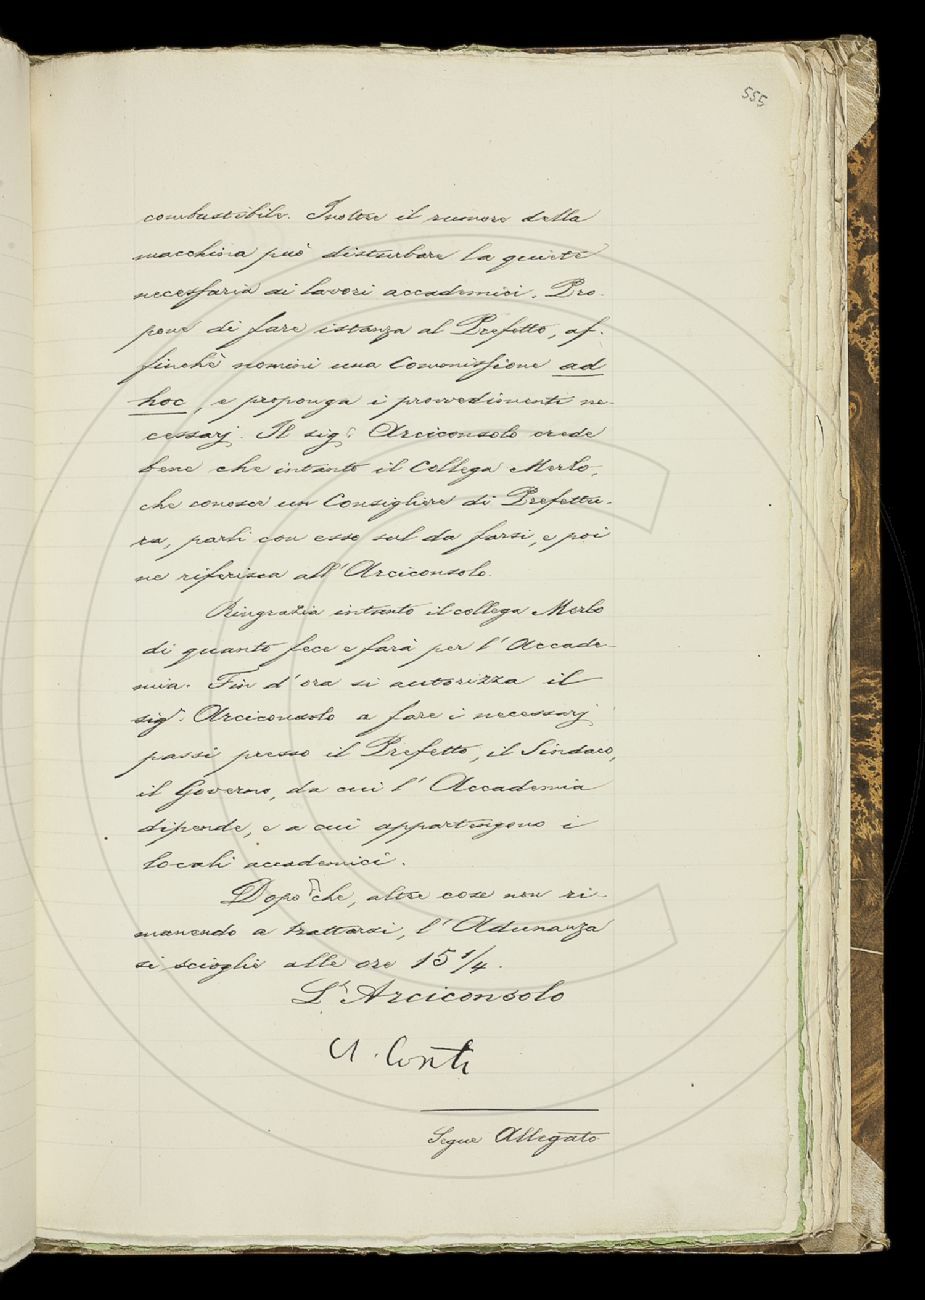 555
combustibile. Inoltre il rumore della
macchina può disturbare la quiete
necessaria ai lavori accademici. Pro-
pone di fare istanza al Prefetto, af-
finchè nomini una Commissione ad
hoc, e proponga i provvedimenti ne-
cessarj. Il sigr. Arciconsolo crede
bene che intanto il Collega Merlo,
che conosce un Consigliere di Prefettu-
ra, parli con esso sul da farsi, e poi
ne riferisca all'Arciconsolo.
Ringrazia intanto il collega Merlo
di quanto fece e farà per l'Accade-
mia. Fin d'ora si autorizza il
sigr. Arciconsolo a fare i necessarj
passi presso il Prefetto, il Sindaco,
il Governo, da cui l'Accademia
dipende, e a cui appartengono i
locali accademici.
Dopo che, altre cose non ri-
manendo a trattarsi, l'Adunanza
si scioglie alle ore 15 1/4.
L'Arciconsolo
A. Conti
Segue Allegato